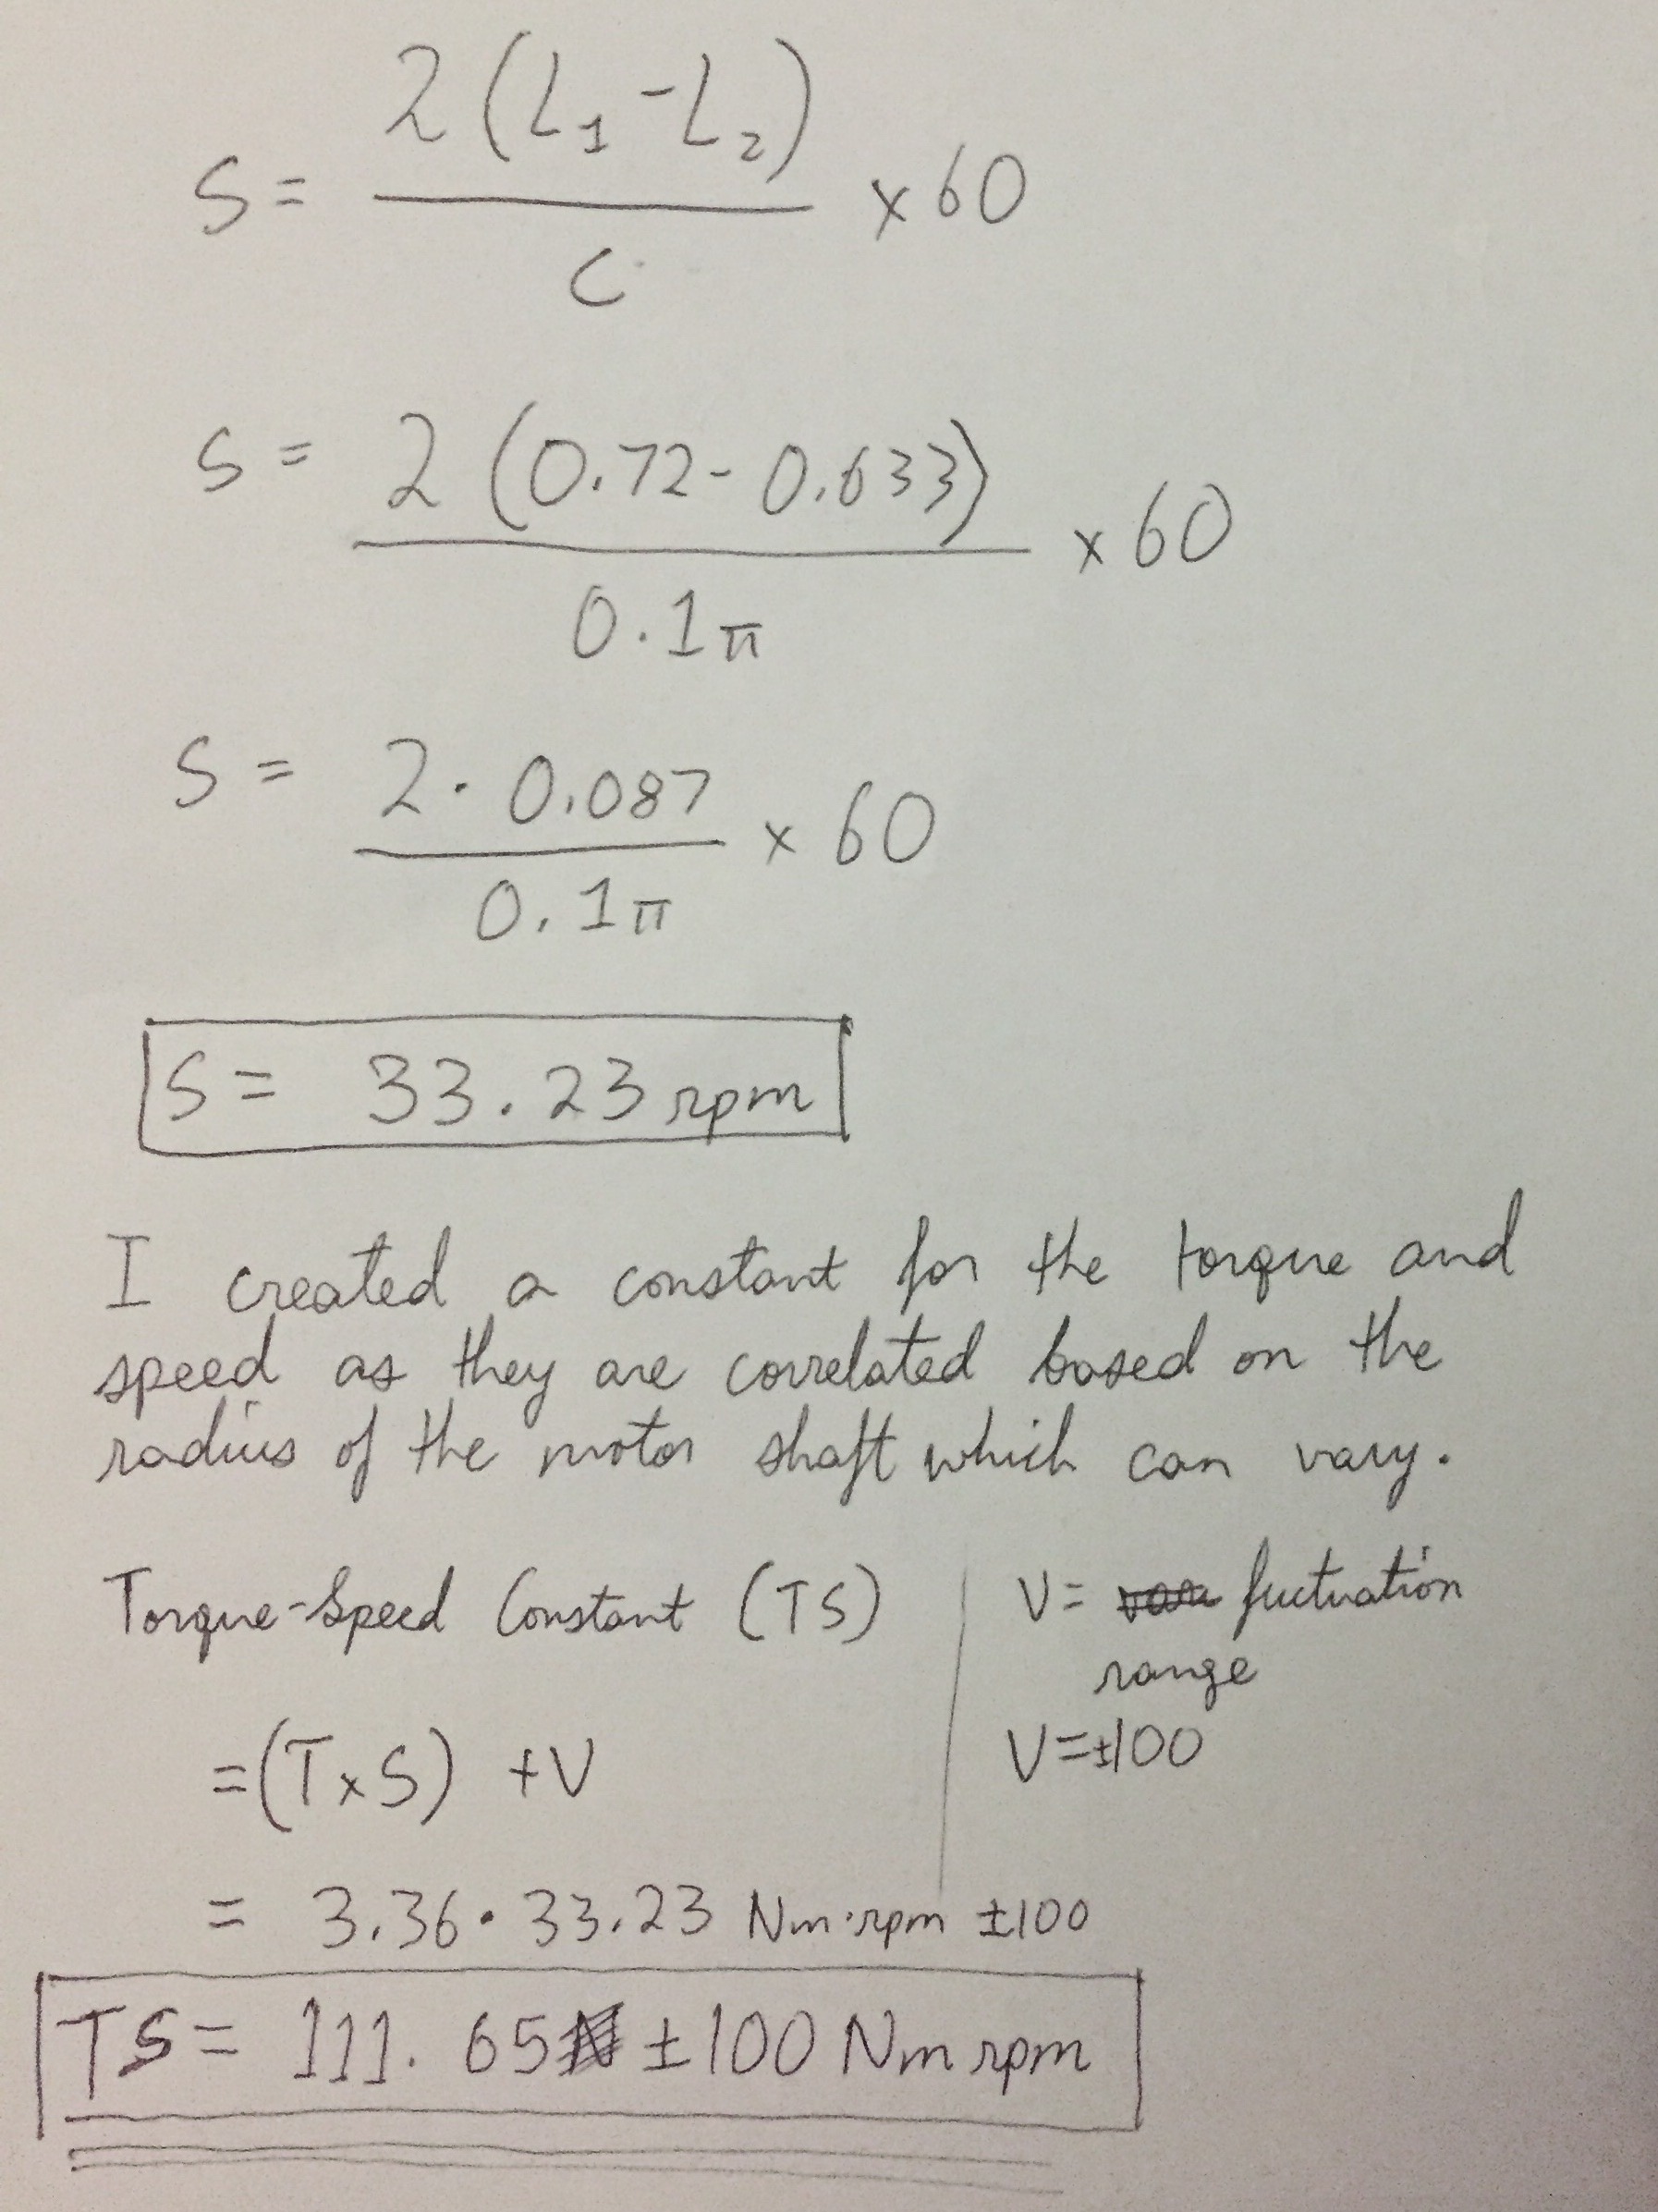 S = 2(L1-L2) / C × 60
S = 2(0.72-0.633) / 0.1π × 60
S = 2·0.087 / 0.1π × 60
S = 33.23 rpm
I created a constant for the torque and
speed as they are correlated based on the
radius of the motor shaft which can vary.
Torque-Speed Constant (TS)
V = fluctuation
range
= (T×S) +V
V=±100
= 3.36·33.23 Nm·rpm ±100
TS = 111.65 ±100 Nm rpm